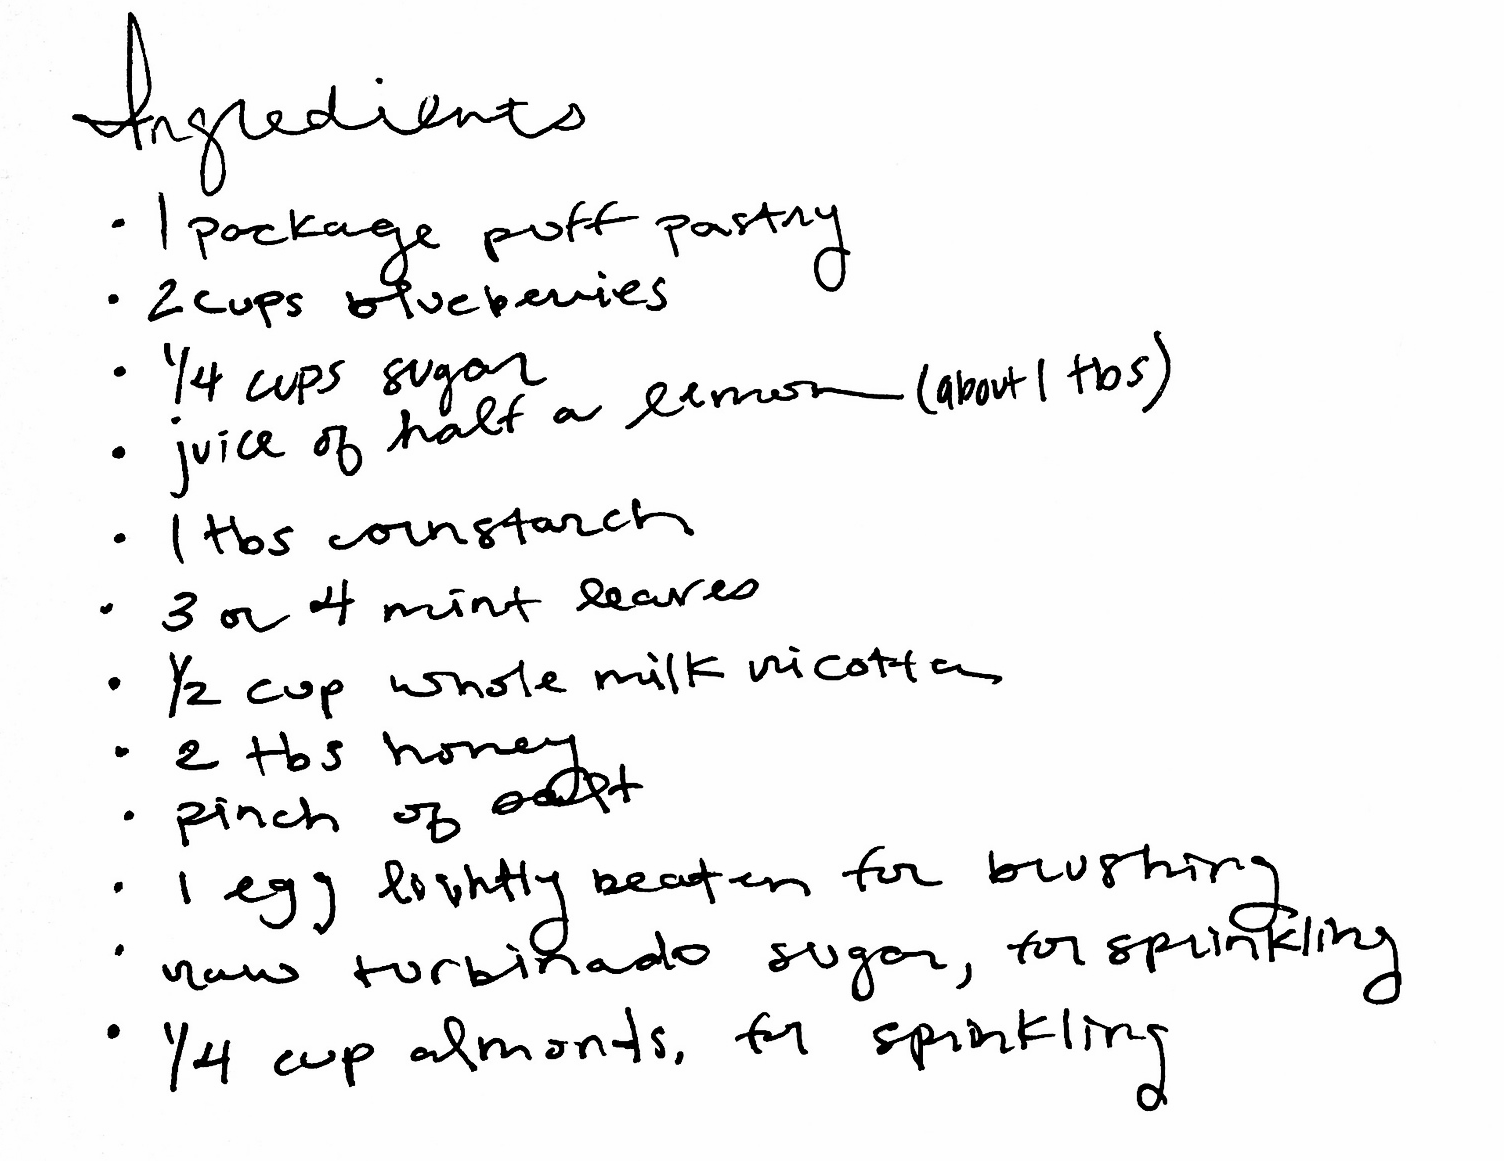 Ingredients
· 1 package puff pastry
· 2 cups blueberries
· 1/4 cups sugar
· juice of half a lemon (about 1 tbs)
· 1 tbs cornstarch
· 3 or 4 mint leaves
· 1/2 cup whole milk ricotta
· 2 tbs honey
· pinch of salt
· 1 egg lightly beaten for brushing
· raw turbinado sugar, for sprinkling
· 1/4 cup almonds, for sprinkling